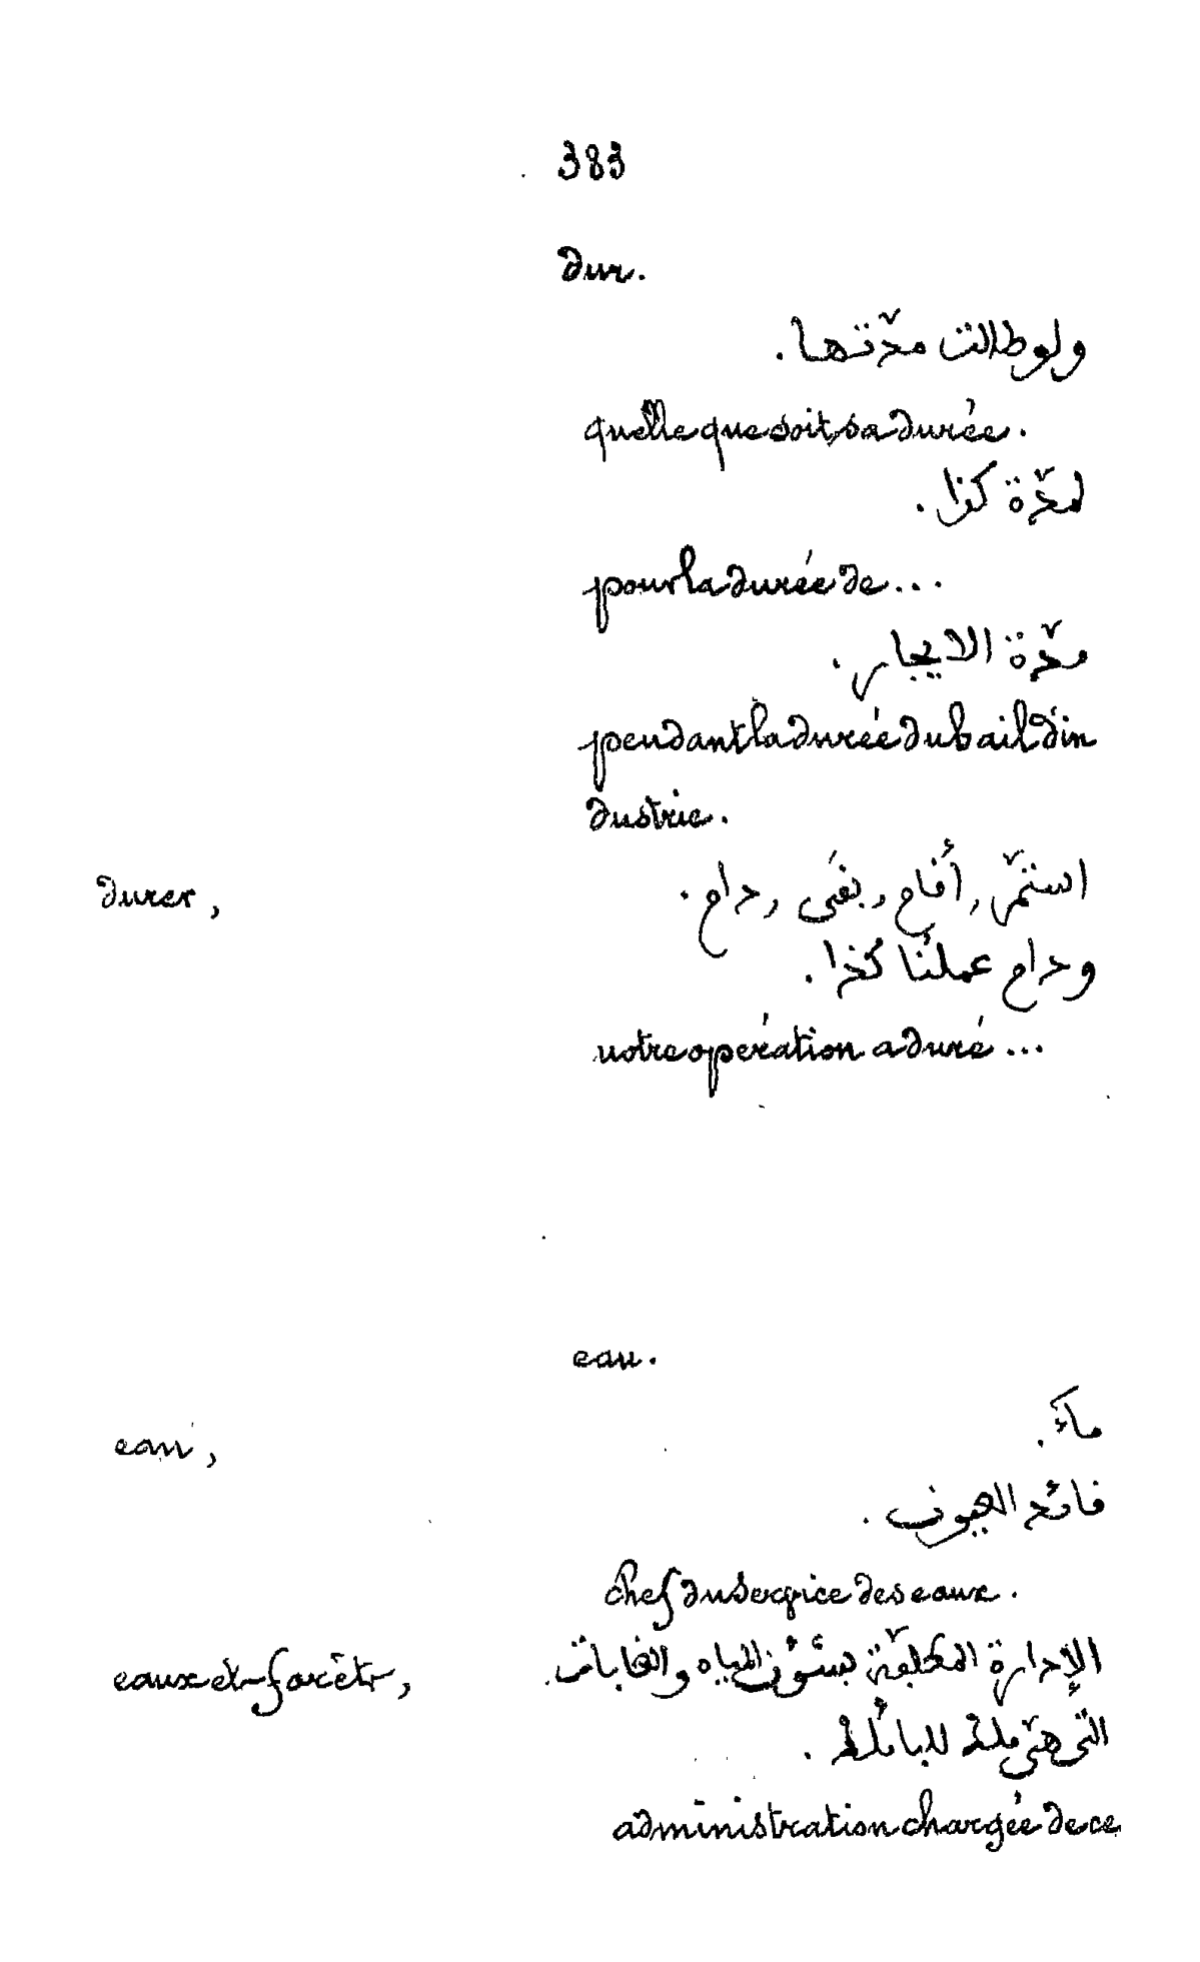 383
dur.
ولو طالت مدّتها.
quelle que soit sa durée.
لمدّة كذا.
pour la durée de...
مدّة الايجار.
pendant la durée du bail d'in
dustrie.
durer, استمّر, أقام, بقى, دام.
ودام عملنا كذا.
notre opération a duré...
eau.
eau, ماء.
قائد العيون.
chef du service des eaux.
eaux et forêts, الإدارة المكلّفة بشئون المياه والغابات
التى هىّ ملك للبائلك.
administration chargée de ce